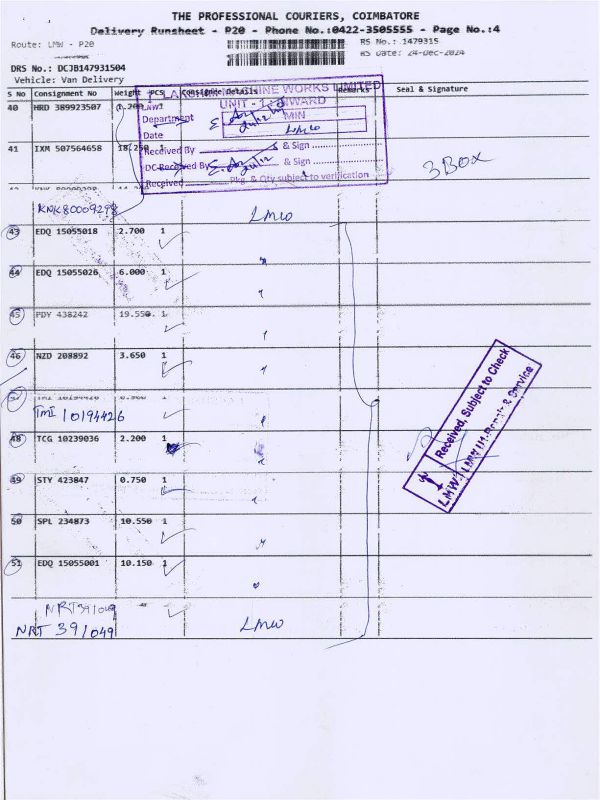 THE PROFESSIONAL COURIERS, COIMBATORE
Delivery Runsheet - P20 - Phone No.:0422-3505555 - Page No.:4
Route: LMW - P20
RS No.: 1479315
RS Date: 24-Dec-2024
DRS No.: DCJB147931504
Vehicle: Van Delivery
S No Consignment No Weight PCS Consignee Details Remarks Seal & Signature
LAKSHMI MACHINE WORKS LIMITED
UNIT - 1 INWARD
40 HRD 389923507 1.200 1
Department
MIN
Date
LMW
41 IXM 507564658 18.250 1
Received By & Sign
DC Received By & Sign
Received Pkg. & Qty subject to verification
3 BOX
KNK80009298
LMW
43 EDQ 15055018 2.700 1
44 EDQ 15055026 6.000 1
45 PDY 438242 19.550 1
46 NZD 208892 3.650 1
TMI 10194426 0.900 1
TMI 10194426
48 TCG 10239036 2.200 1
Received, Subject to Check
49 STY 423847 0.750 1
50 SPL 234873 10.550 1
51 EDQ 15055001 10.150 1
NRT 391049
NRT 391049
LMW